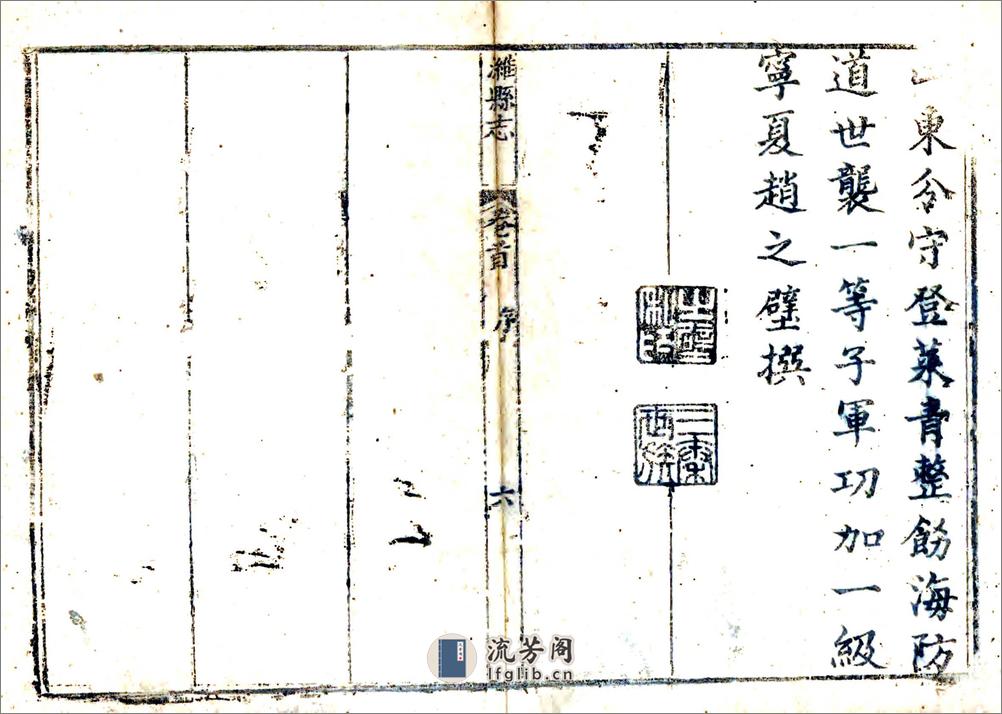 山東分守登萊青整飭海防
道世襲一等子軍功加一級
寧夏趙之璧撰
之璧私印
三秦
濰縣志 卷首 序 六
流芳阁
lfglib.cn